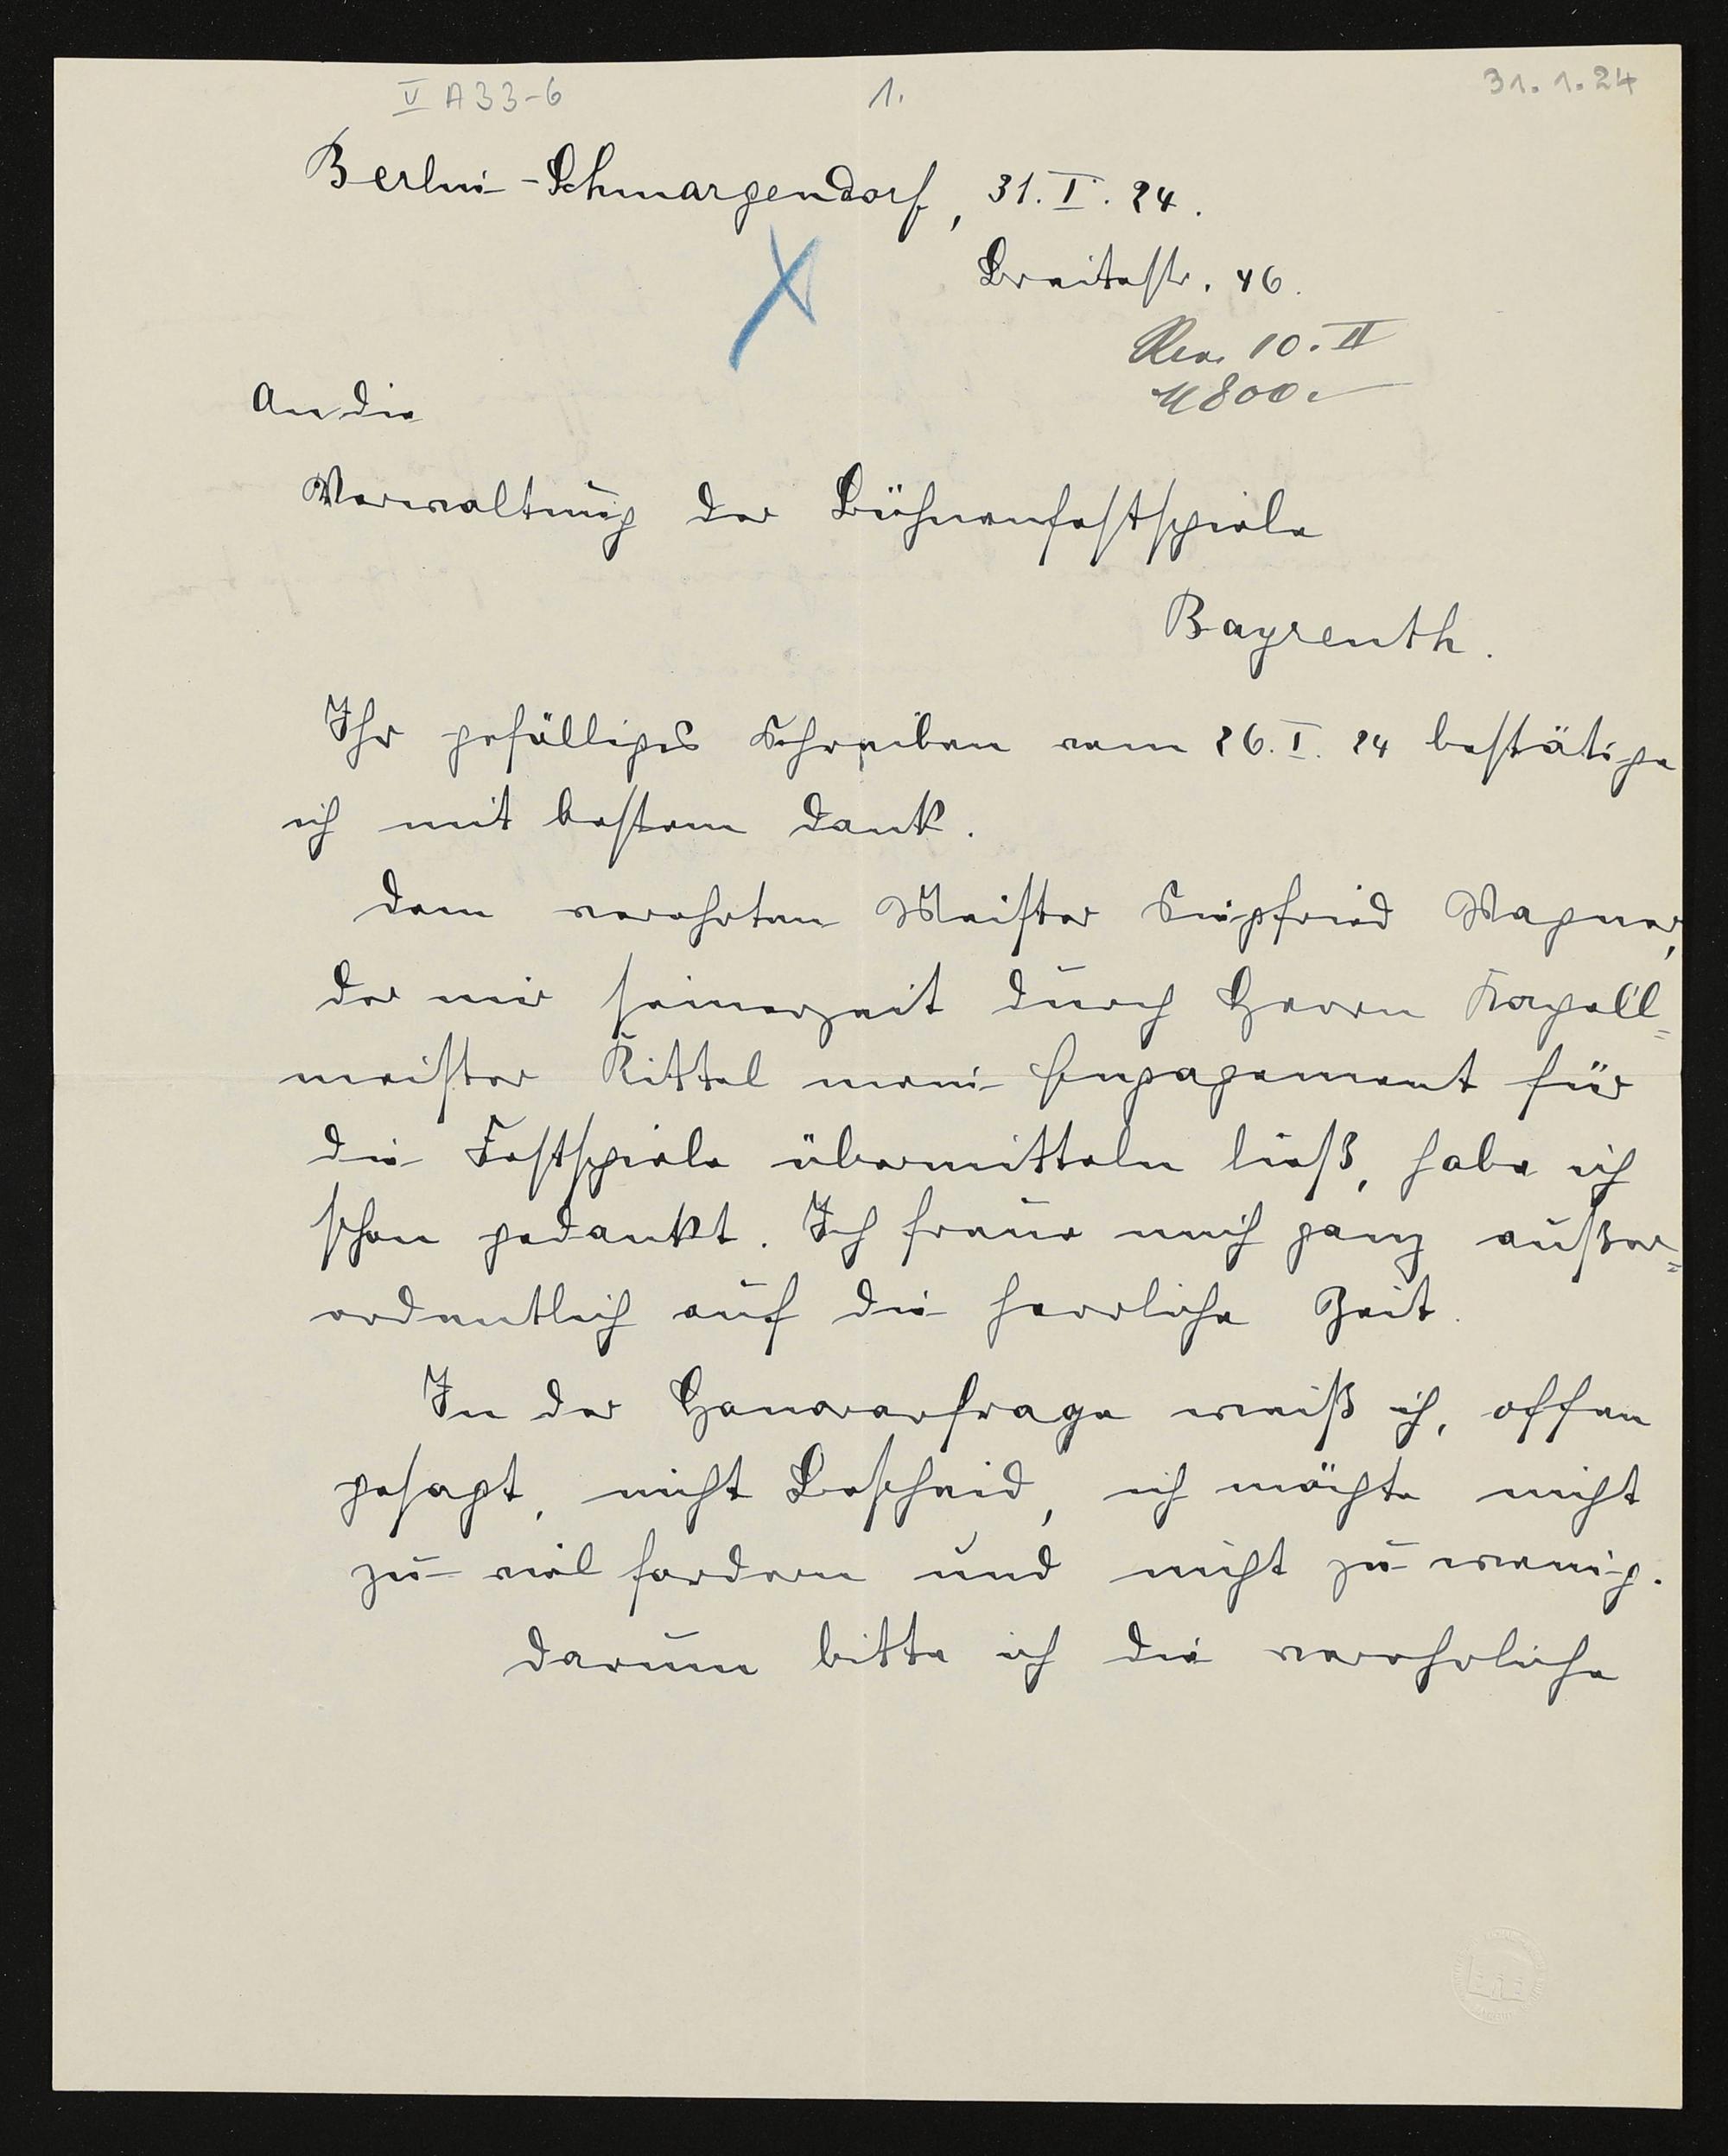 V A 33-6 1. 31.1.24
Berlin-Schmargendorf, 31. I. 24.
Breitestr. 46.
10. II
M 800.—
An die
Verwaltung der Bühnenfestspiele
Bayreuth.
Ihr gefälliges Schreiben vom 26. I. 24 bestätige
ich mit bestem Dank.
Dem verehrten Meister Siegfried Wagner,
der mir seinerzeit durch Herrn Kapell=
meister Kittel mein Engagement für
die Festspiele übermitteln ließ, habe ich
schon gedankt. Ich freue mich ganz außer=
ordentlich auf die herrliche Zeit.
In der Honorarfrage weiß ich, offen
gesagt, nicht Bescheid, ich möchte nicht
zu viel fordern und nicht zu wenig.
Darum bitte ich die verehrliche